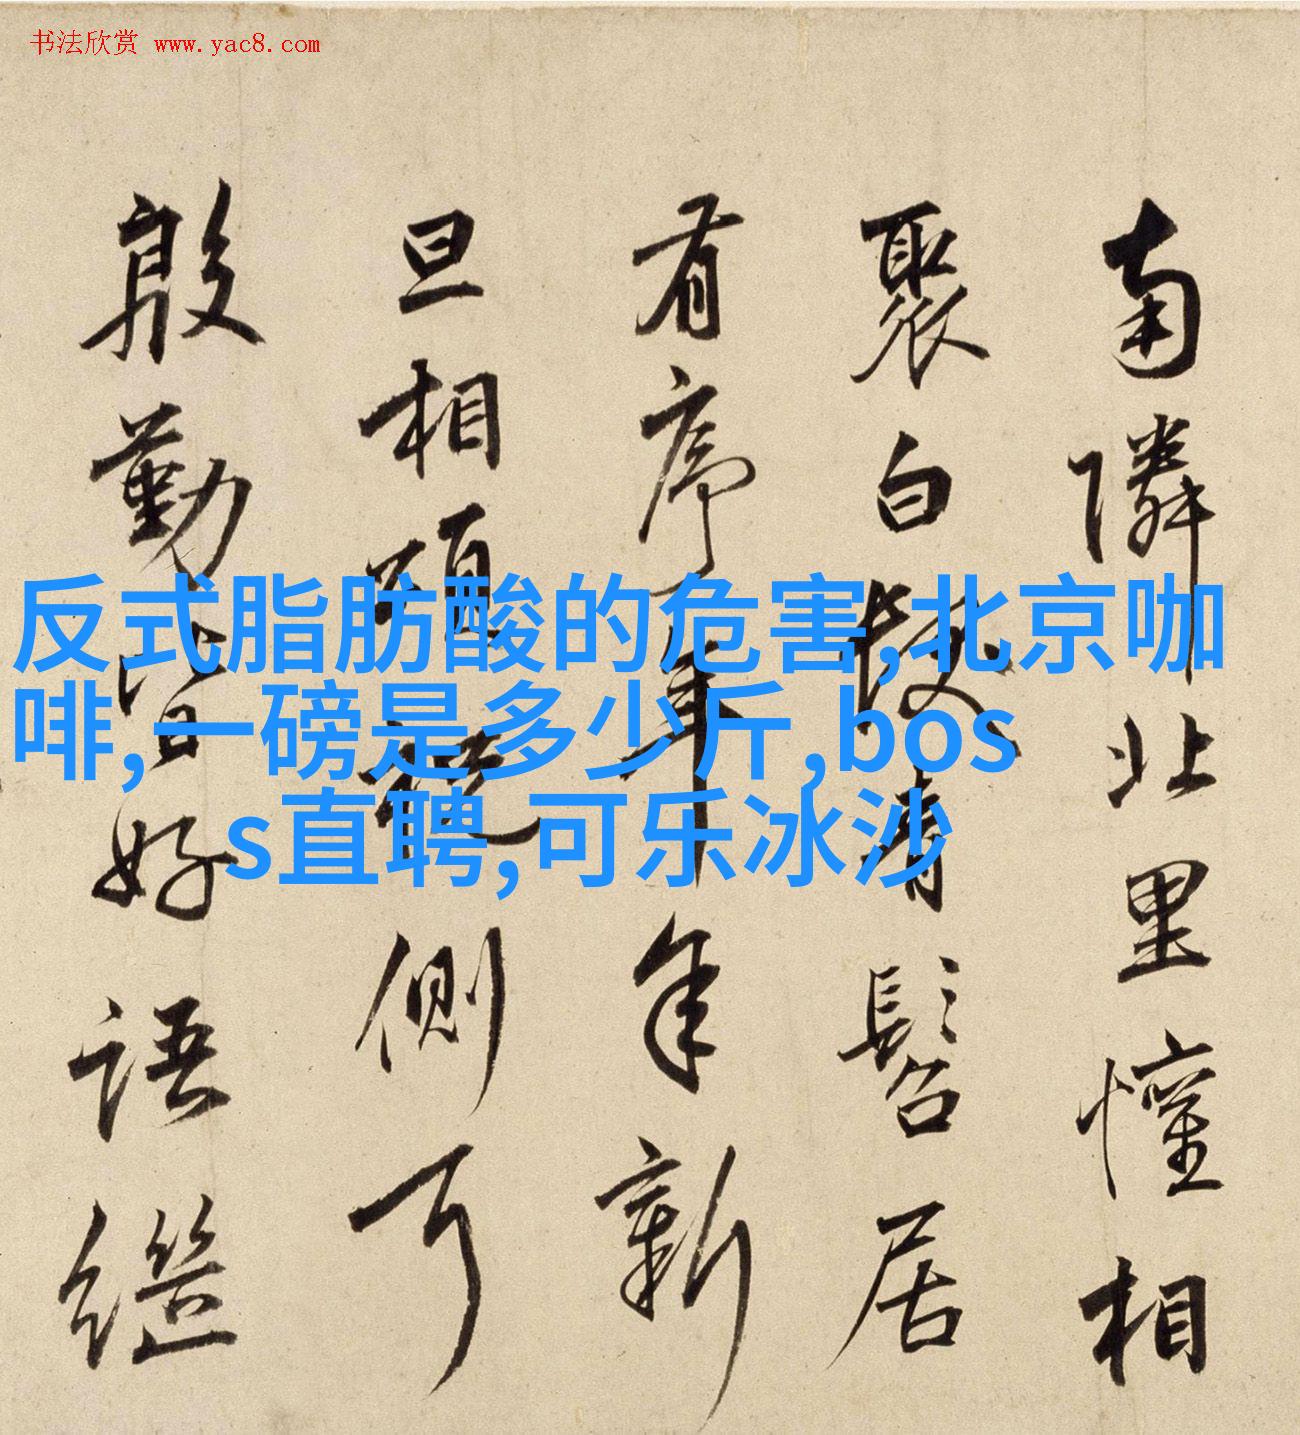 书法欣赏 www.yac8.com
反式脂肪酸的危害,北京咖
啡,一磅是多少斤,bos
s直聘,可乐冰沙
南隣北里懽相
聚白青髫居
有序年年新
旦相側耳
殷勤皆好語繼